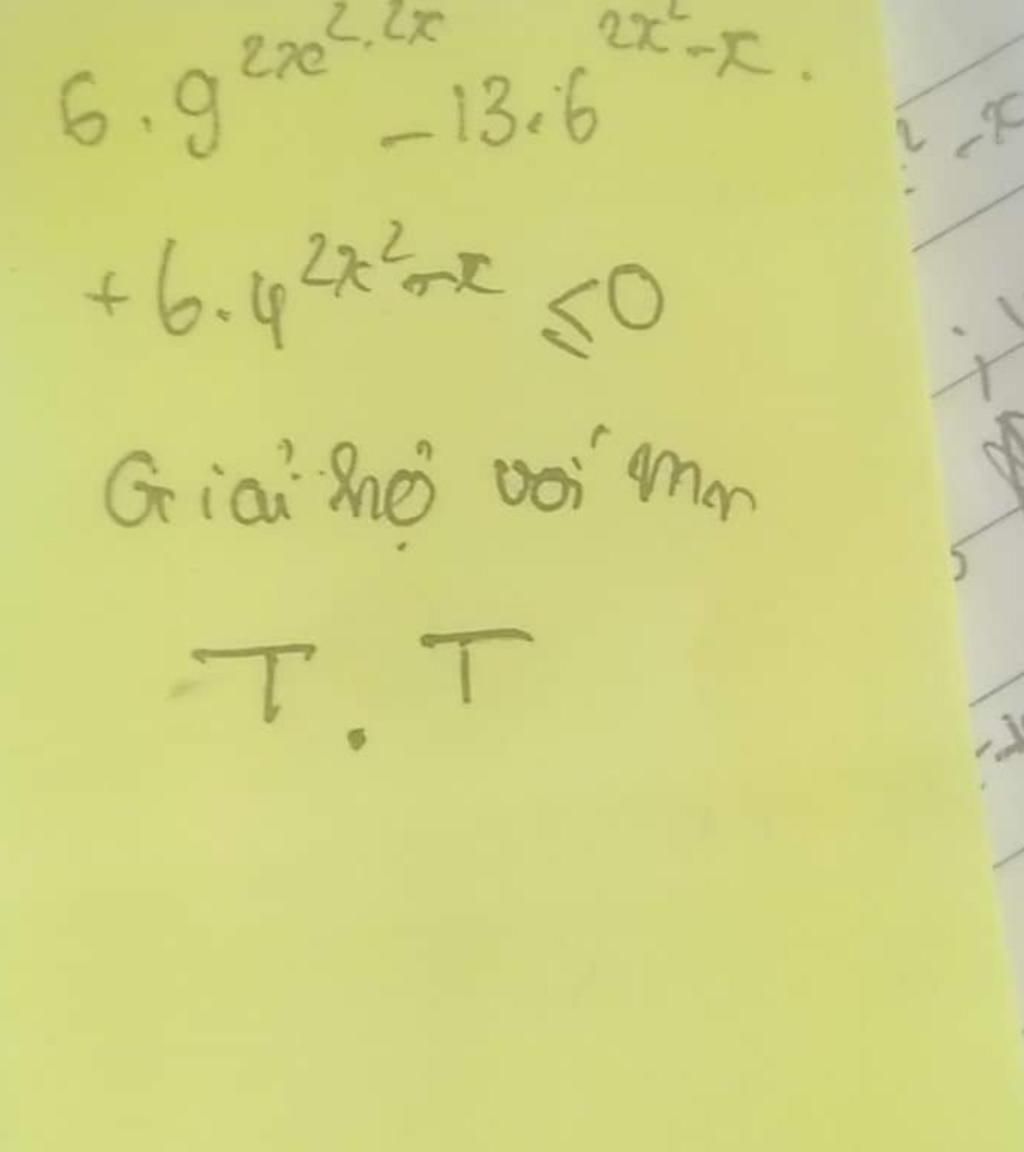 6.9^{2x^2.2x} -13.6^{2x^2-x}.
+6.4^{2x^2-x} ≤0
Giải hộ với mn
T.T
-x